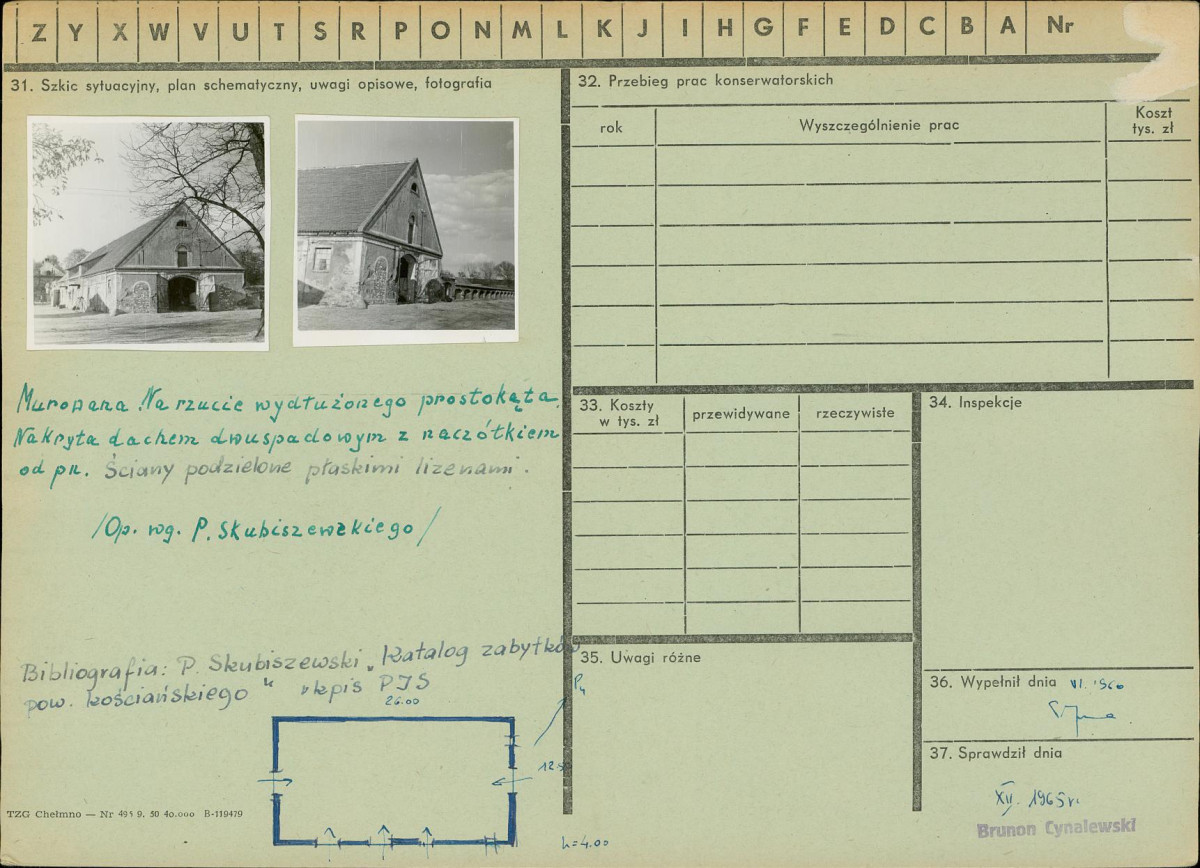 Z Y X W V U T S R P O N M L K J I H G F E D C B A Nr
31. Szkic sytuacyjny, plan schematyczny, uwagi opisowe, fotografia
Murowana. Na rzucie wydłużonego prostokąta.
Nakryta dachem dwuspadowym z naczółkiem
od pn. Ściany podzielone płaskimi lizenami.
/Op. wg. P. Skubiszewskiego/
Bibliografia: P. Skubiszewski „Katalog zabytków
pow. kościańskiego" rkpis PIS
26.00
Pn
h=4.00
TZG Chełmno — Nr 495 9. 50 40.000 B-119479
32. Przebieg prac konserwatorskich
rok
Wyszczególnienie prac
Koszt
tys. zł
33. Koszty
w tys. zł
przewidywane
rzeczywiste
34. Inspekcje
35. Uwagi różne
36. Wypełnił dnia VI. 1960
37. Sprawdził dnia
XII. 1965 r.
Brunon Cynalewski